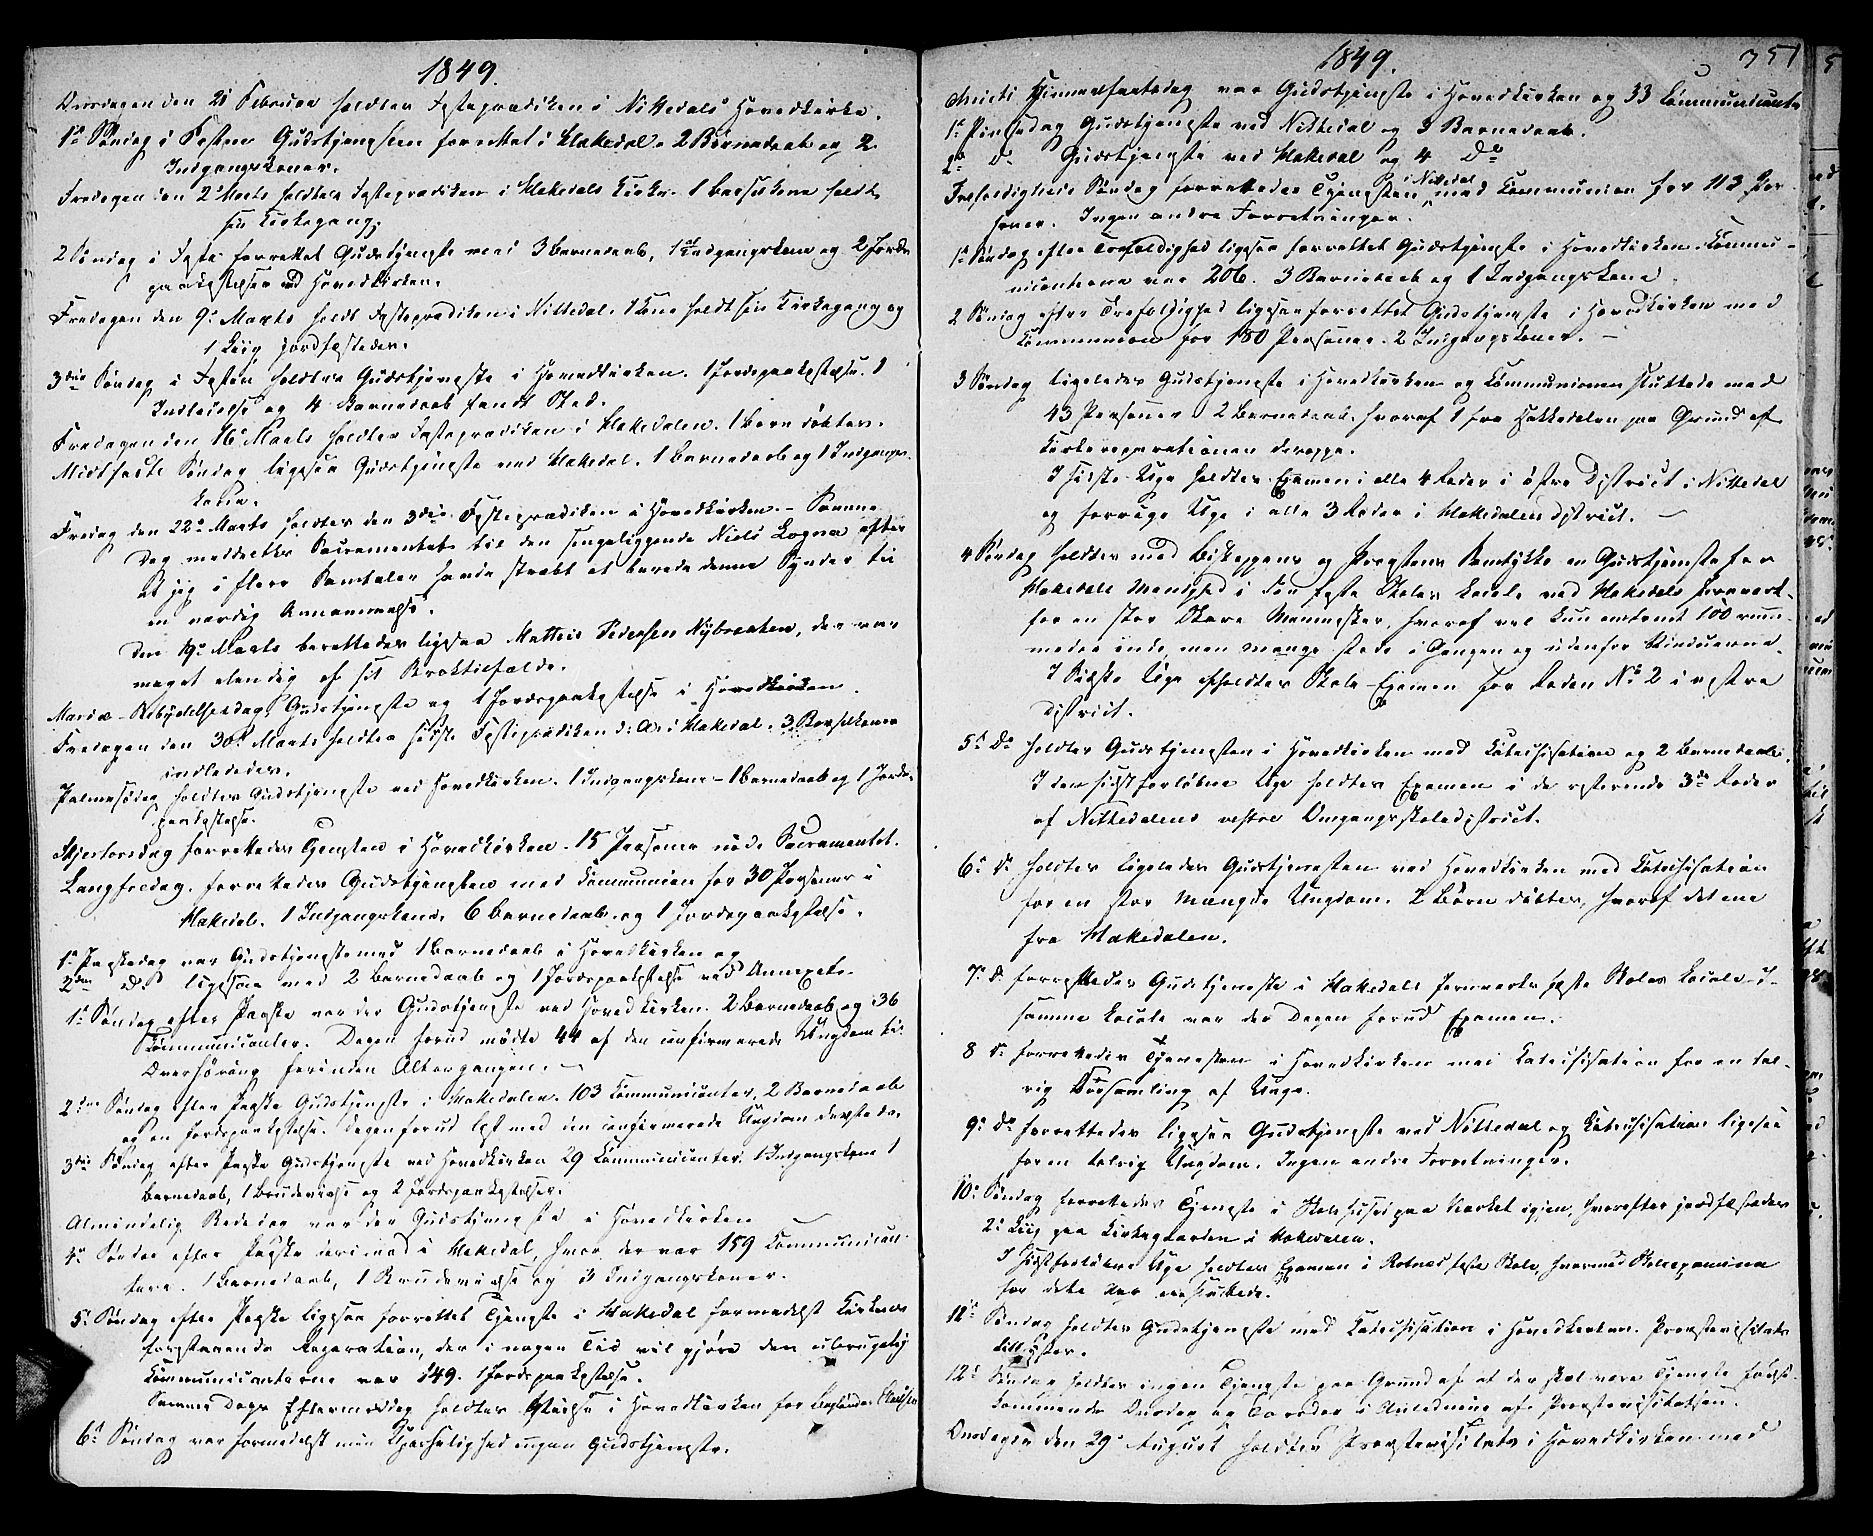 1849.
Onsdagen den 21 Februar holdtes Fasteprædiken i Nittedals Hovedkirke.
1ste Søndag i Fasten Gudstjenesten forrettet i Hakedal. 2 Børnedaab og 2
Indgangskoner.
Fredagen den 2den Marts holdtes Fasteprædiken i Hakedals Kirke. 1 Barselkone holdt
sin Kirkegang.
2 Søndag i Faste forrettet Gudstjeneste med 3 Barnedaab, 1 Indgangskone og 2 Jords-
paakastelser ved Hovedkirken.
Fredagen den 9de Marts holdt Fasteprædiken i Nittedal. 1 Kone holdt sin Kirkegang og
1 Liig jordfæstedes.
3die Søndag i Fasten holdtes Gudstjeneste i Hovedkirken. 1 Jordspaakastelse. 1
Indledelse og 4 Barnedaab fandt Sted.
Fredagen den 16de Marts holdtes Fasteprædiken i Hakedalen. 1 Barn døbtes.
Midtfaste Søndag ligesaa Gudstjeneste ved Hakedal. 1 Barnedaab og 1 Indgangs-
kone.
Fredag den 22de Marts holdtes den 3die Fasteprædiken i Hovedkirken. – Samme
Dag meddeeltes Sacramentet til den sengeliggende Niels Logna efter
at jeg i flere Samtaler havde stræbt at berede denne Synder til
en værdig Annammelse.
Den 19de Marts berettedes ligesaa Mathias Pedersen Nybraaten, der var
meget elendig af sit Broktilfælde.
Mariæ Bebudelsesdag Gudstjeneste og 1 Jordspaakastelse i Hovedkirken.
Fredagen den 30te Marts holdtes sidste Fasteprædiken d: A: i Hakedal. 3 Barselkoner
indlededes.
Palmesødag holdtes Gudstjeneste ved Hovedkirken. 1 Indgangskone – 1 Barnedaab og 1 Jords-
paakastelse.
Skjertorsdag forrettedes Tjenesten i Hovedkirken. 15 Personer nøde Sacramentet.
Langfredag forrettedes Gudstjenesten med Communion for 30 Personer i
Hakedal. 1 Indgangskone, 6 Barnedaab og 1 Jordspaakastelse.
1ste Paaskedag var Gudstjeneste med 1 Barnedaab i Hovedkirken og
2den do ligesaa med 2 Barnedaab og 1 Jordspaakastelse ved Annexet.
1ste Søndag efter Paaske var der Gudstjeneste ved Hovedkirken. 2 Barnedaab og 36
Communicanter. Dagen forud mødte 44 af den confirmerede Ungdom til
Overhøring forinden Altergangen. –
2den Søndag efter Paaske Gudstjeneste i Hakedalen. 103 Communicanter, 2 Barnedaab
og en Jordspaakastelse. Dagen forud læst med den confirmerede Ungdom
3die Søndag efter Paaske Gudstjeneste ved Hovedkirken 29 Communicanter. 1 Indgangskone 1
Barnedaab, 1 Brudevielse og 2 Jordspaakastelser.
Almindelig Bededag var der Gudstjeneste i Hovedkirken
4de Søndag efter Paaske derimod i Hakedal, hvor der var 159 Communican-
tere. 1 Barnedaab, 1 Brudevielse og 3 Indgangskoner.
5te Søndag efter Paaske ligesaa forrettet Tjeneste i Hakedal formedelst Kirkens
forestaaende Reparation, der i nogen Tid vil gjøre den ubrugelig
Communicanterne var 149. 1 Jordspaakastelse.
Samme Dags Eftermiddag holdtes Vielse i Hovedkirken for
6te Søndag var formedelst min Upasselighed ingen Gudstjeneste.
1849. 351
Christi Himmelfartsdag var Gudstjeneste i Hovedkirken og 33 Communicanter
1ste Pinsedag Gudstjeneste ved Nittedal og 3 Barnedaab.
2den do Gudstjeneste ved Hakedal og 4 Do
Trefoldigheds Søndag forrettedes Tjenesten i Nittedal med Communion for 113 Per-
soner. Ingen andre Forretninger.
1ste Søndag efter Trefoldighed ligesaa forrettet Gudstjeneste i Hovedkirken. Commu-
nicanterne var 206. 3 Barnedaab og 1 Indgangskone.
2 Søndag efter Trefoldighed ligesaa forrettet Gudstjeneste i Hovedkirken med
Communion for 180 Personer. 2 Indgangskoner. –
3 Søndag ligeledes Gudstjeneste i Hovedkirken og Communionen sluttede med
43 Personer. 2 Barnedaab, hvoraf 1 fra Hakkedalen paa Grund af
Kirkereparationen deroppe.
I sidste Uge holdtes Examen i alle 4 Roder i østre District i Nittedal
og forrige Uge i alle 3 Roder i Hakedalens District. –
4 Søndag holdtes med Biskoppens og Provstens Samtykke en Gudstjeneste for
Hakedals Menighed i den faste Skoles Locale ved Hakedals Jernværk.
for en stor Skare Mennesker, hvoraf vel kun omtrent 100 rum-
medes inde, men mange stode i Gangen og udenfor Vinduerne.
I Sidste Uge afholdtes Skole-Examen for Roden No 2 i vestre
District.
5te Do holdtes Gudstjenesten i Hovedkirken med Catechisation og 2 Barnedaab.
I den sidst forløbne Uge holdtes Examen i de resterende 3de Roder
af Nittedalens vestre Omgangsskoledistrict.
6te Do holdtes ligeledes Gudstjenesten ved Hovedkirken med Catechisation
for en stor Mængde Ungdom. 2 Børn døbtes, hvoraf det ene
fra Hakedalen.
7de Do forrettedes Gudstjeneste i Hakedals Jernværks faste Skoles Locale. I
samme Locale var der Dagen forud Examen.
8 Do forrettedes Tjenesten i Hovedkirken med Catechisation for en tal-
rig Forsamling af Unge.
9de Do forrettedes ligesaa Gudstjeneste ved Nittedal og Catechisation ligesaa
for en talrig Ungdom. Ingen andre Forretninger.
10de Søndag forrettedes Tjeneste i Skolehuset paa Værket igjen, hvorefter jordfæstedes
2de Liig paa Kirkegaarden i Hakedalen.
I Sidstforløbne Uge holdtes Examen i Rotnes faste Skole, hvormed Skoleexamina
for dette Aar ere sluttede.
11te Søndag holdtes Gudstjeneste med Catechisation i Hovedkirken. Provstevisitats
tillystes.
12te Søndag holdtes ingen Tjeneste paa Grund af at der skal være Tjeneste først-
kommende Onsdag og Torsdag i Anledning af Provstevisitatsen.
Onsdagen den 29de August holdtes Provstevisitats i Hovedkirken med